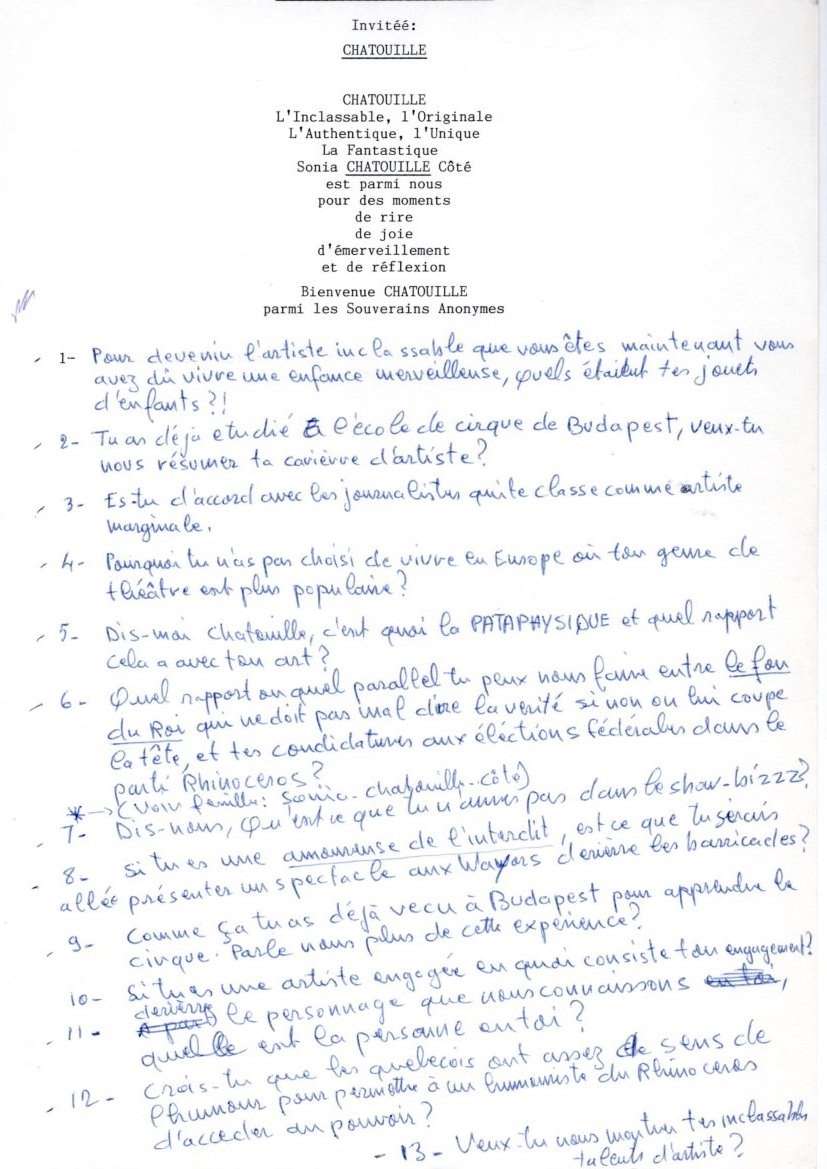 Invitéé:
CHATOUILLE
CHATOUILLE
L'Inclassable, l'Originale
L'Authentique, l'Unique
La Fantastique
Sonia CHATOUILLE Côté
est parmi nous
pour des moments
de rire
de joie
d'émerveillement
et de réflexion
Bienvenue CHATOUILLE
parmi les Souverains Anonymes
1- Pour devenir l'artiste inclassable que vous êtes maintenant vous
avez dû vivre une enfance merveilleuse, quels étaient tes jouets
d'enfants ?!
2- Tu as déjà etudié à l'école de cirque de Budapest, veux-tu
nous résumer ta carièrre d'artiste?
3- Es-tu d'accord avec les journalistes qui te classe comme artiste
marginale.
4- Pourquoi tu n'as pas choisi de vivre en Europe où ton genre de
théâtre est plus populaire?
5- Dis-moi Chatouille, c'est quoi la PATAPHYSIQUE et quel rapport
cela a avec ton art?
6- Quel rapport ou quel parallel tu peux nous faire entre le fou
du Roi qui ne doit pas mal dire la verité si non on lui coupe
la tête, et tes condidatures aux éléctions fédérales dans le
parti Rhinoceros?
* → (voir feuille: Sonia-chatouille-côté)
7- Dis-nous, Qu'est ce que tu n'aimes pas dans le show-bizzz?
8- Si tu es une amoureuse de l'interdit, est ce que tu serais
allée présenter un spectacle aux Wayors derière les barricades?
9- Comme ça tu as déjà vecu à Budapest pour apprendre le
cirque. Parle nous plus de cette experience?
10- Si tu es une artiste engagée en quoi consiste ton engagement?
11- derierre le personnage que nous connaissons en toi,
quelle est la personne en toi?
12- Crois-tu que les quebecois ont assez de sens de
l'humour pour permettre à un humoriste du Rhinoceros
d'acceder au pouvoir?
- 13- Veux-tu nous montrer tes inclassables
talents d'artiste?